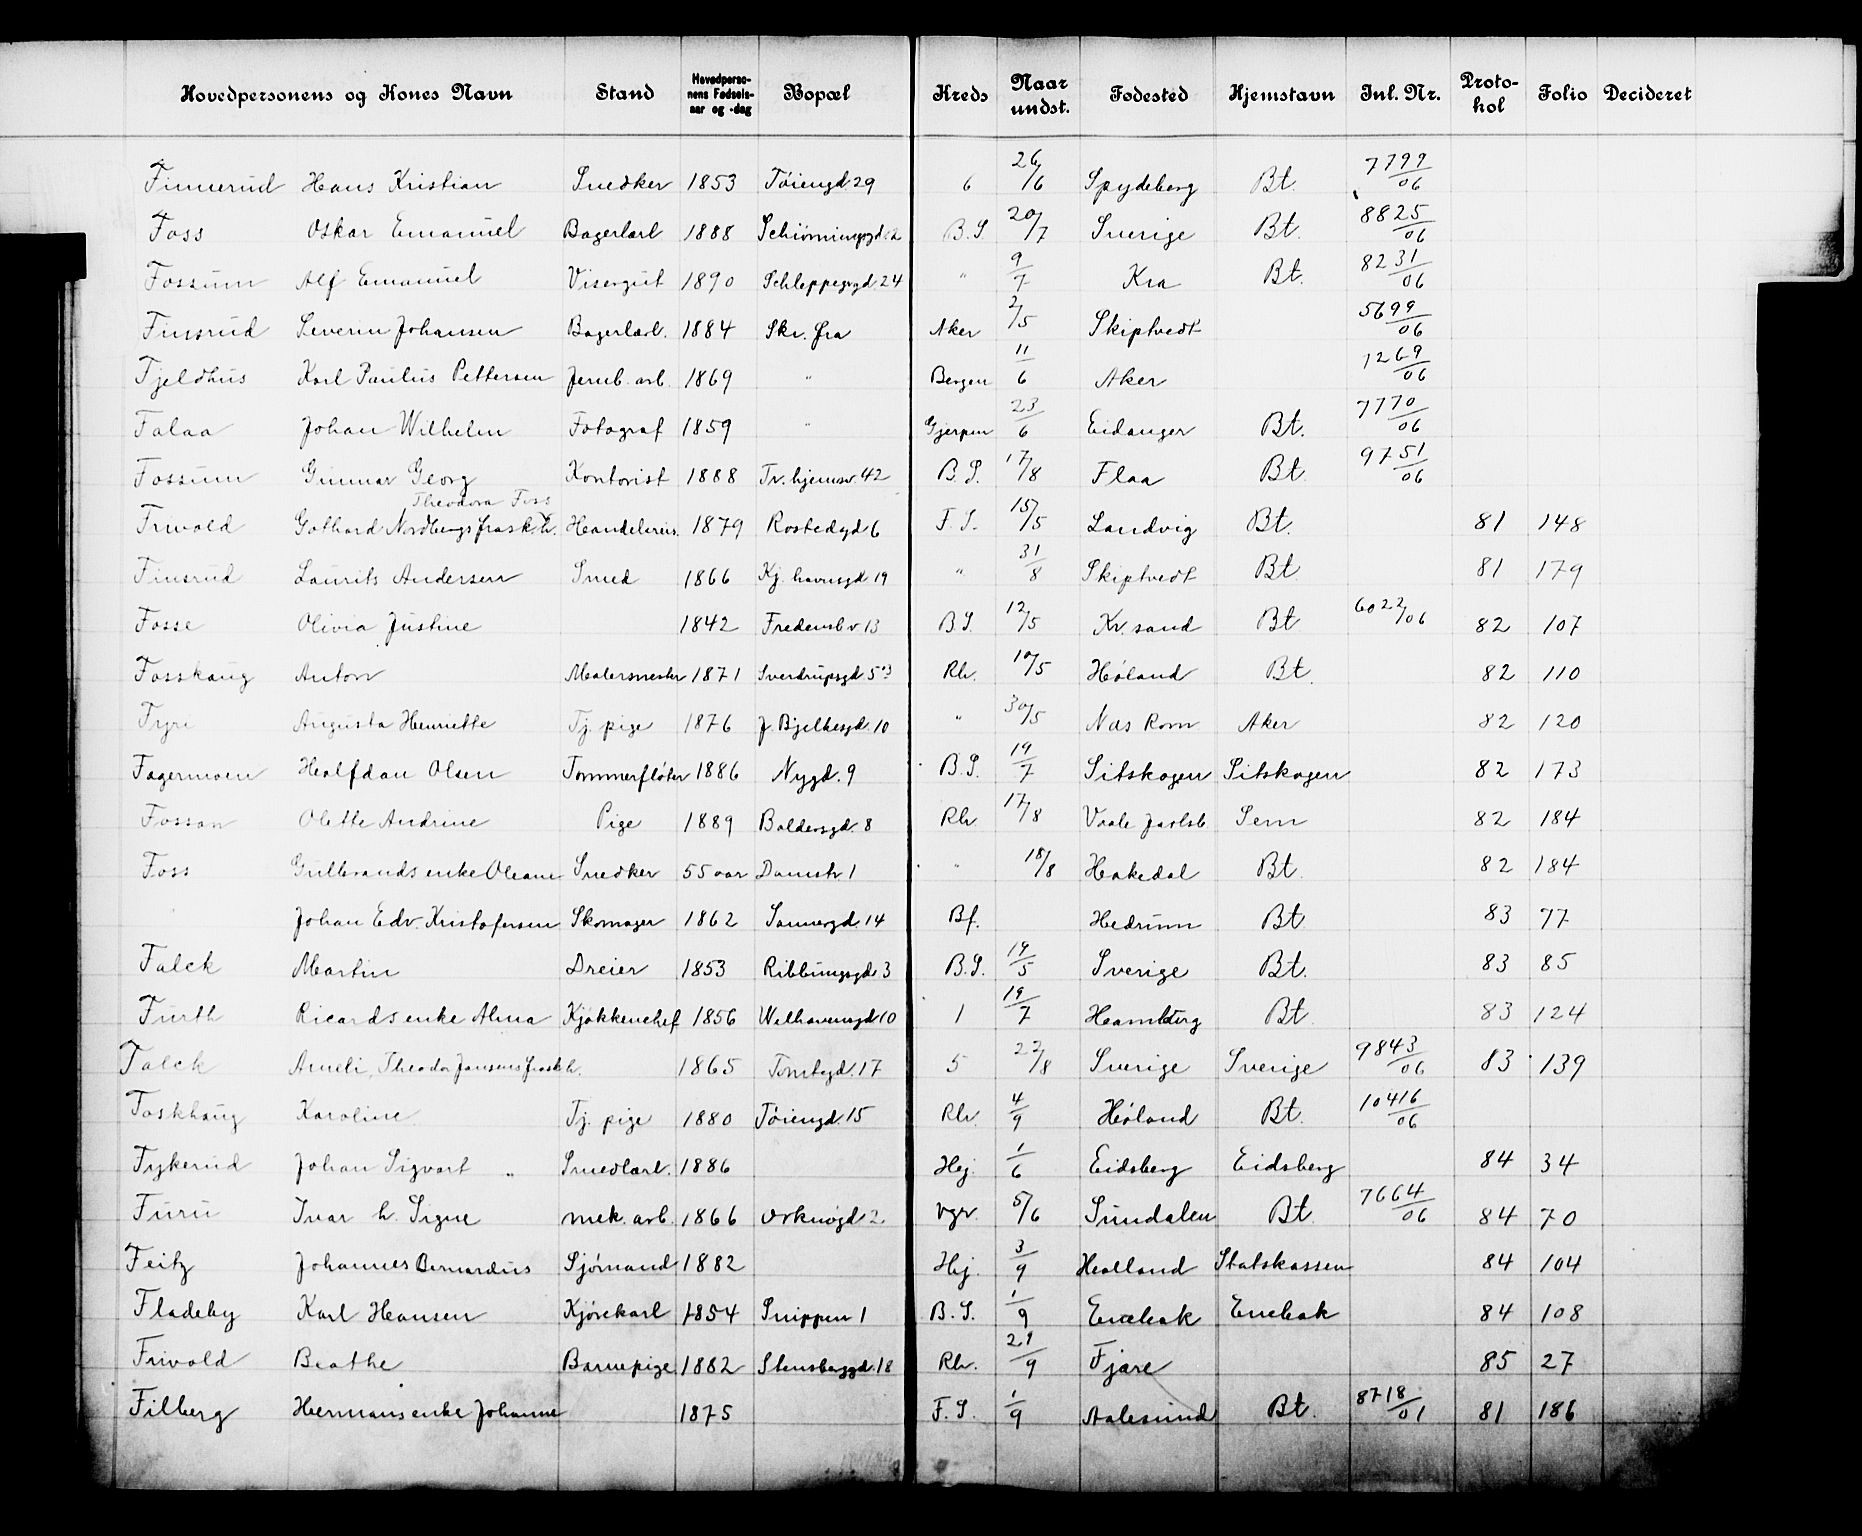 Hovedpersonens og Kones Navn Stand Hovedpersonens Fødselsaar og -dag Bopæl Kreds Naar undst. Fødested Hjemstavn Inl. Nr. Protokol Folio Decideret
Finnerud Hans Kristian Snedker 1853 Tøiengd 29 6 26/6 Spydeberg Bt. 7799/06
Foss Oskar Emanuel Bagerlærl 1888 B.S. 20/7 Sverige Bt. 8825/06
Fossum Alf Emanuel Visergut 1890 Schleppegrgd 24 " 9/7 Kra Bt. 8231/06
Finsrud Severin Johansen Bagerlærl. 1884 Skr. fra Aker 2/5 Skiptvedt 5699/06
Fjeldhus Karl Paulus Pettersen Jernb. arb. 1869 " Bergen 11/6 Aker 1269/06
Falaa Johan Wilhelm Fotograf 1859 " Gjerpen 23/6 Eidanger Bt. 7770/06
Fossum Gunnar Georg Kontorist 1888 Tv. hjemsv. 42 B.S. 17/8 Flaa Bt 9751/06
Theodora Foss
Frivold Gothard Nordbergs frask. h. Handelsreis. 1879 Rostedgd 6 F.S. 15/5 Landvig Bt. 81 148
Finsrud Laurits Andersen Smed 1866 Kj. havnsgd 19 " 31/8 Skiptvedt Bt 81 179
Fosse Olivia Justine 1842 Fredensb v 13 B.S. 12/5 Kr. sand Bt 6022/06 82 107
Fosskaug Anton Malermester 1871 Sverdrupsgd 5 Rh. 10/5 Høland Bt. 82 110
Fyri Augusta Henriette Tj. pige 1876 J. Bjelkesgd. 10 " 30/5 Næs Rom Aker 82 120
Fagermoen Halfdan Olsen Tømmerfløter 1886 Nygd. 9 B.S. 19/7 Sitskogen Sitskogen 82 173
Fossan Olette Andrine Pige 1889 Baldersgd. 8 Rh. 17/8 Vaale Jarlsb Sem 82 184
Foss Gulbrands enke Oleane Snedker 55 aar Damstr 1 " 18/8 Hakedal Bt 82 184
Johan Edv. Kristofersen Skomager 1862 Sannergd. 14 Bf. Hedrum Bt 83 77
Falck Martin Dreier 1853 Ribbungsgd. 3 B.S. 19/5 Sverige Bt. 83 85
Furth Ricards enke Alma Kjøkkenchef 1856 Welhavensgd 10 1 19/7 Hamburg Bt 83 124
Falck Ameli, Theodor Jansens frask h. 1865 Tomtegd. 17 5 22/8 Sverige Sverige 9843/06 83 139
Foskhaug Karoline Tj. pige 1880 Tøiengd. 15 Rh. 4/9 Høland Bt. 10416/06
Fykerud Johan Sigvart " Smedlærl. 1886 Hej. 1/6 Eidsberg Eidsberg 84 34
Furu Ivar h. Signe mek. arb. 1866 Orknøgd 2 Vgr. 5/6 Sundalen Bt. 7664/06 84 70
Feitz Johannes Bernardus Sjømand 1882 Hej. 3/9 Holland Statskassen 84 104
Fladeby Karl Hansen Kjørekarl 1854 Snippen 1 B.S. 1/9 Enebak Enebak 84 108
Frivold Beathe Barnepige 1882 Stensberggd. 18 Rh. 29/9 Fjære 85 27
Filberg Hermans enke Johanne 1875 F.S. 1/9 Aalesund Bt. 8718/01 81 186